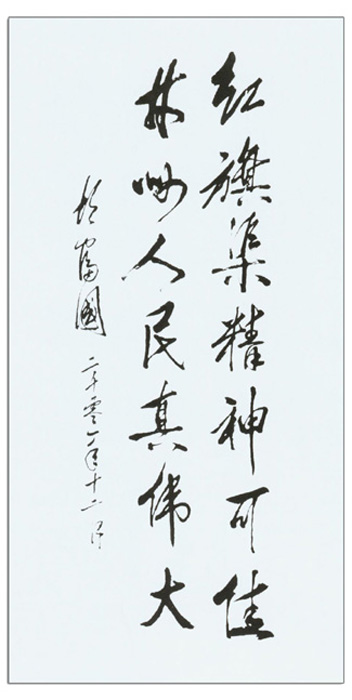 红旗渠精神可佳
林州人民真偉大
胡富國 二千零一年十二月